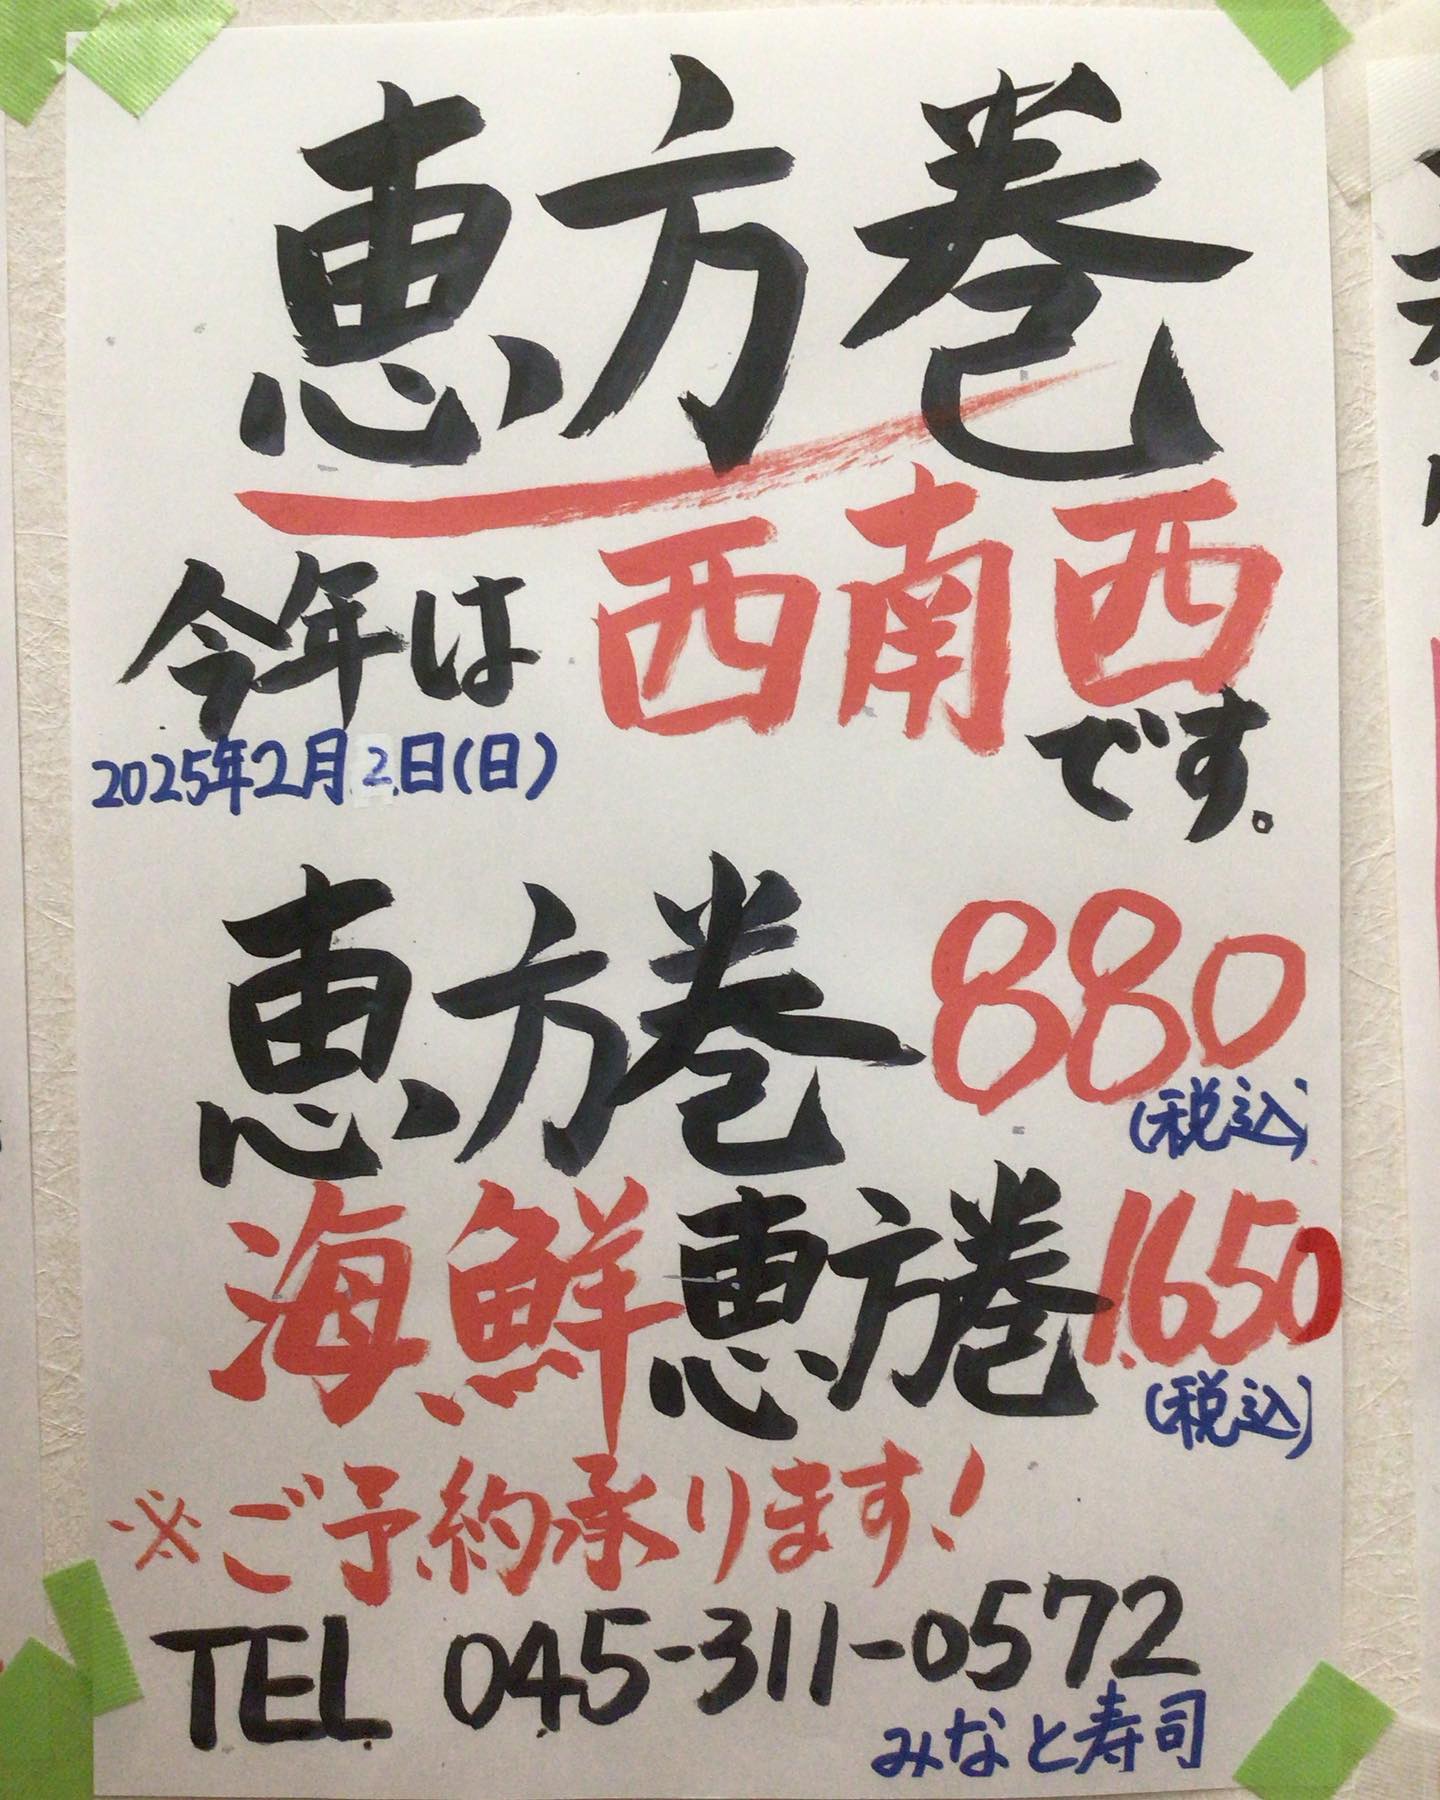 恵方巻
今年は西南西です。
2025年2月2日(日)
恵方巻 880
(税込)
海鮮恵方巻 1.650
(税込)
※ご予約承ります!
TEL 045-311-0572
みなと寿司